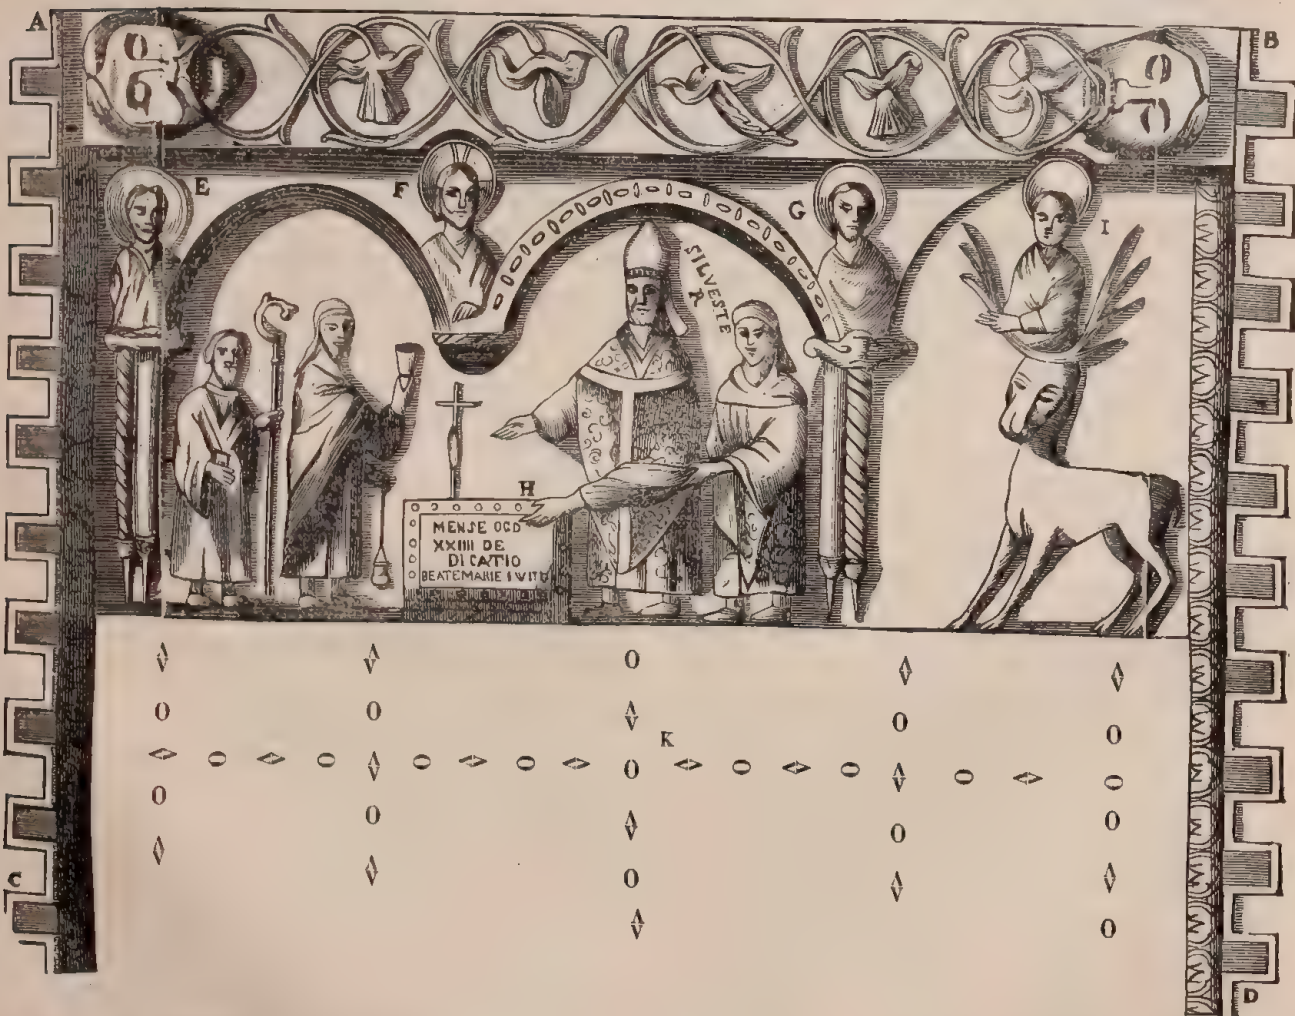 A
B
E
F
G
I
SILVESTE
R
H
MENSE OCD
XXIIII DE
DICATIO
BEATE MARIE I VITU
K
C
D